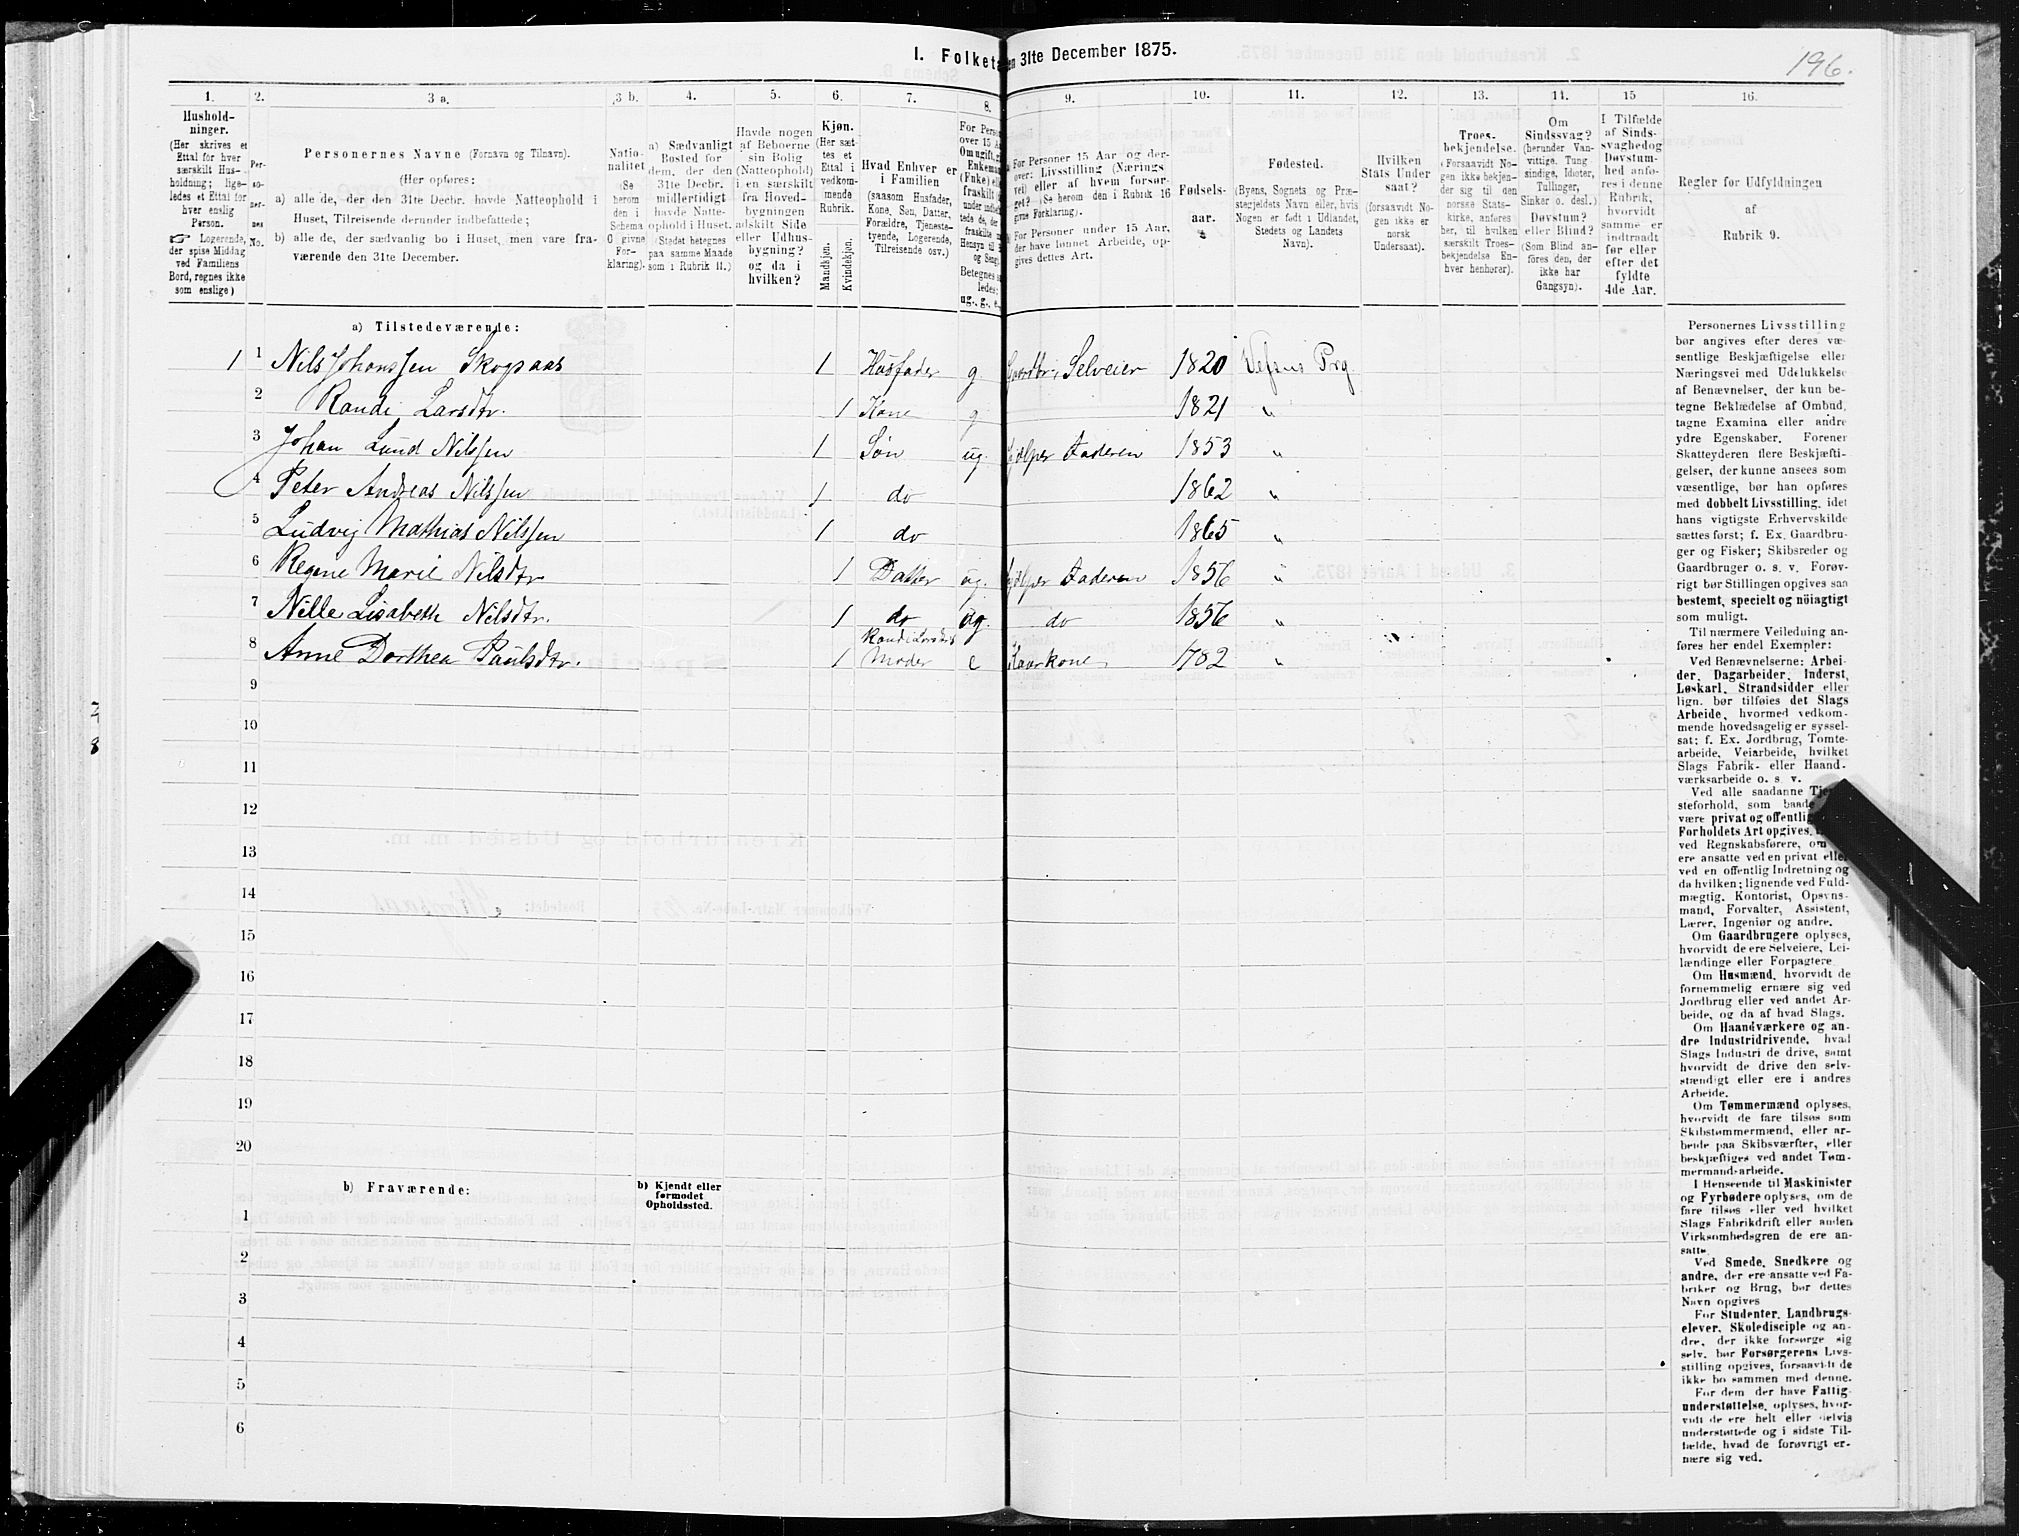 196.
I. Folketæ en 31te December 1875.
1. 2. 3 a. 3 b. 4. 5. 6. 7. 8. 9. 10. 11. 12. 13. 14. 15 16.
Hushold-
ninger.
(Her skrives et
Ettal for hver
særskilt Hus-
holdning; lige-
ledes et Ettal for
hver enslig
Person.
☞ Logerende,
der spise Middag
ved Familiens
Bord, regnes ikke
som enslige)
Per-
so-
ner-
nes
No.
Personernes Navne (Fornavn og Tilnavn).
(Her opføres:
a) alle de, der den 31te Decbr. havde Natteophold i
Huset, Tilreisende derunder indbefattede;
b) alle de, der sædvanlig bo i Huset, men vare fra-
værende den 31te December.
Natio-
nalitet
(Se
herom
den i
Schema
O givne
For-
klaring).
a) Sædvanligt
Bosted for
dem, der den
31te Decbr.
midlertidigt
havde Natte-
ophold i Huset.
(Stedet betegnes
paa samme Maade
som i Rubrik 11.)
Havde nogen
af Beboerne
sin Bolig
(Natteophold)
i en særskilt
fra Hoved-
bygningen
adskilt Side
eller Udhus-
bygning?
og da i
hvilken?
Kjøn.
(Her sæt-
tes et
Ettal i
vedkom-
mende
Rubrik.
Mandkjøn.
Kvindekjøn.
Hvad Enhver er
i Familien
(saasom Husfader,
Kone, Søn, Datter,
Forældre, Tjeneste-
tyende, Logerende,
Tilreisende osv.)
For Person
over 15 A
Om ugift, g
Enkema
(Enke) ell
fraskilt
under indbef
tede de, der
fraskilte m
Hensyn til B
og Seng.
Betegnes s
ledes:
ug., g., e.,
For Personer 15 Aar og der-
over: Livsstilling (Nærings-
vei) eller af hvem forsør-
get? (Se herom den i Rubrik 16
givne Forklaring).
For Personer under 15 Aar,
der have lønnet Arbeide, op-
gives dettes Art.
Fødsels-
aar.
Fødested.
(Byens, Sognets og Præ-
stegjeldets Navn eller, hvis
Nogen er født i Udlandet,
Stedets og Landets
Navn).
Hvilken
Stats Under
saat?
(forsaavidt No-
gen ikke er
norsk
Undersaat).
Troes-
bekjendelse.
(Forsaavidt No-
gen ikke bekjen-
der sig til den
norske Stats-
kirke, anføres
her, til hvilken
særskilt Troes-
bekjendelse En-
hver henhører).
Om
Sindssvag?
(herunder Van-
vittige, Tung
sindige, Idioter,
Tullinger,
Sinker o. desl.)
Døvstum?
eller Blind?
(Som Blind an-
føres den, der
ikke har
Gangsyn).
I Tilfælde
af Sinds-
svaghed og
Døvstum-
hed anfø-
res i denne
Rubrik,
hvorvidt
samme er
indtraadt
før eller
efter det
fyldte
4de Aar.
Regler for Udfyldningen
af
Rubrik 9.
a) Tilstedeværende:
1 1 Nils Johanssen Skogsaas 1 Husfader g. Gaardbr., Selveier 1820 Vefsns Prg
2 Randi Larsdtr. 1 Kone g 1821 "
3 Johan Lund Nilssen 1 Søn ug. Hjelper Faderen 1853 "
4 Peter Andreas Nilssen 1 do 1862 "
5 Ludvig Mathias Nilssen 1 do 1865 "
6 Regine Marie Nilsdtr 1 Datter ug. Hjelper Faderen 1856 "
7 Nille Lisabeth Nilsdtr. 1 do ug. do 1856 "
8 Anne Dorthea Paulsdtr. 1 Randi Larsdtrs Moder e Kaarkone, 1782 "
9
10
11
12
13
14
15
16
17
18
19
20
b) Fraværende:
b) Kjendt eller
formodet
Opholdssted.
1
2
3
4
5
6
Personernes Livsstilling
bør angives efter deres væ-
sentlige Beskjæftigelse eller
Næringsvei med Udelukkelse
af Benævnelser, der kun be-
tegne Beklædelse af Ombud,
tagne Examina eller andre
ydre Egenskaber. Forener
Skatteyderen flere Beskjæfti-
gelser, der kunne ansees som
væsentlige, bør han opføres
med dobbelt Livsstilling, idet
hans vigtigste Erhvervskilde
sættes først; f. Ex. Gaardbru-
ger og Fisker; Skibsreder og
Gaardbruger o. s. v. Forøv-
rigt bør Stillingen opgives saa
bestemt, specielt og nøiagtigt
som muligt.
Til nærmere Veiledning an-
føres her endel Exempler:
Ved Benævnelserne: Arbei-
der, Dagarbeider, Inderst,
Løskarl, Strandsidder eller
lign. bør tilføies det Slags
Arbeide, hvormed vedkom-
mende hovedsagelig er syssel-
sat; f. Ex. Jordbrug, Tomte-
arbeide, Veiarbeide, hvilket
Slags Fabrik- eller Haand-
værksarbeide o. s. v.
Ved alle saadanne Tje
steforhold, som baade
være privat og offentlig
Forholdets Art opgives,
ved Regnskabsførere, om
ere ansatte ved en privat eller
ved en offentlig Indretning og
da hvilken; lignende ved Fuld-
mægtig, Kontorist, Opsyns-
mand, Forvalter, Assistent,
Lærer, Ingeniør og andre.
Om Gaardbrugere oplyses,
hvorvidt de ere Selveiere, Lei-
lændinge eller Forpagtere.
Om Husmænd, hvorvidt de
fornemmelig ernære sig ved
Jordbrug eller ved andet Ar-
beide, og da af hvad Slags.
Om Haandværkere og an-
dre Industridrivende, hvad
Slags Industri de drive, samt
hvorvidt de drive den selv-
stændigt eller ere i andres
Arbeide.
Om Tømmermænd oplyses,
hvorvidt de fare tilsøs som
Skibstømmermænd, eller ar-
beide paa Skibsværfter, eller
beskjæftiges ved andet Tøm-
mermandsarbeide.
I Henseende til Maskinister
og Fyrbødere oplyses, om de
fare tilsøs eller ved hvilket
Slags Fabrikdrift eller anden
Virksomhedsgren de ere an-
satte.
Ved Smede, Snedkere og
andre, der ere ansatte ved Fa-
briker og Brug, bør dettes
Navn opgives
For Studenter, Landbrugs-
elever, Skoledisciple og an-
dre, der ikke forsørge sig
selv, bør Forsørgerens Livs-
stilling opgives, forsaavidt de
ikke bo sammen med denne.
For dem der have Fattig-
understøttelse, oplyses, hvor-
vidt de ere helt eller delvis
understøttede og i sidste Til-
fælde, hvad de forøvrigt er-
nære sig ved.